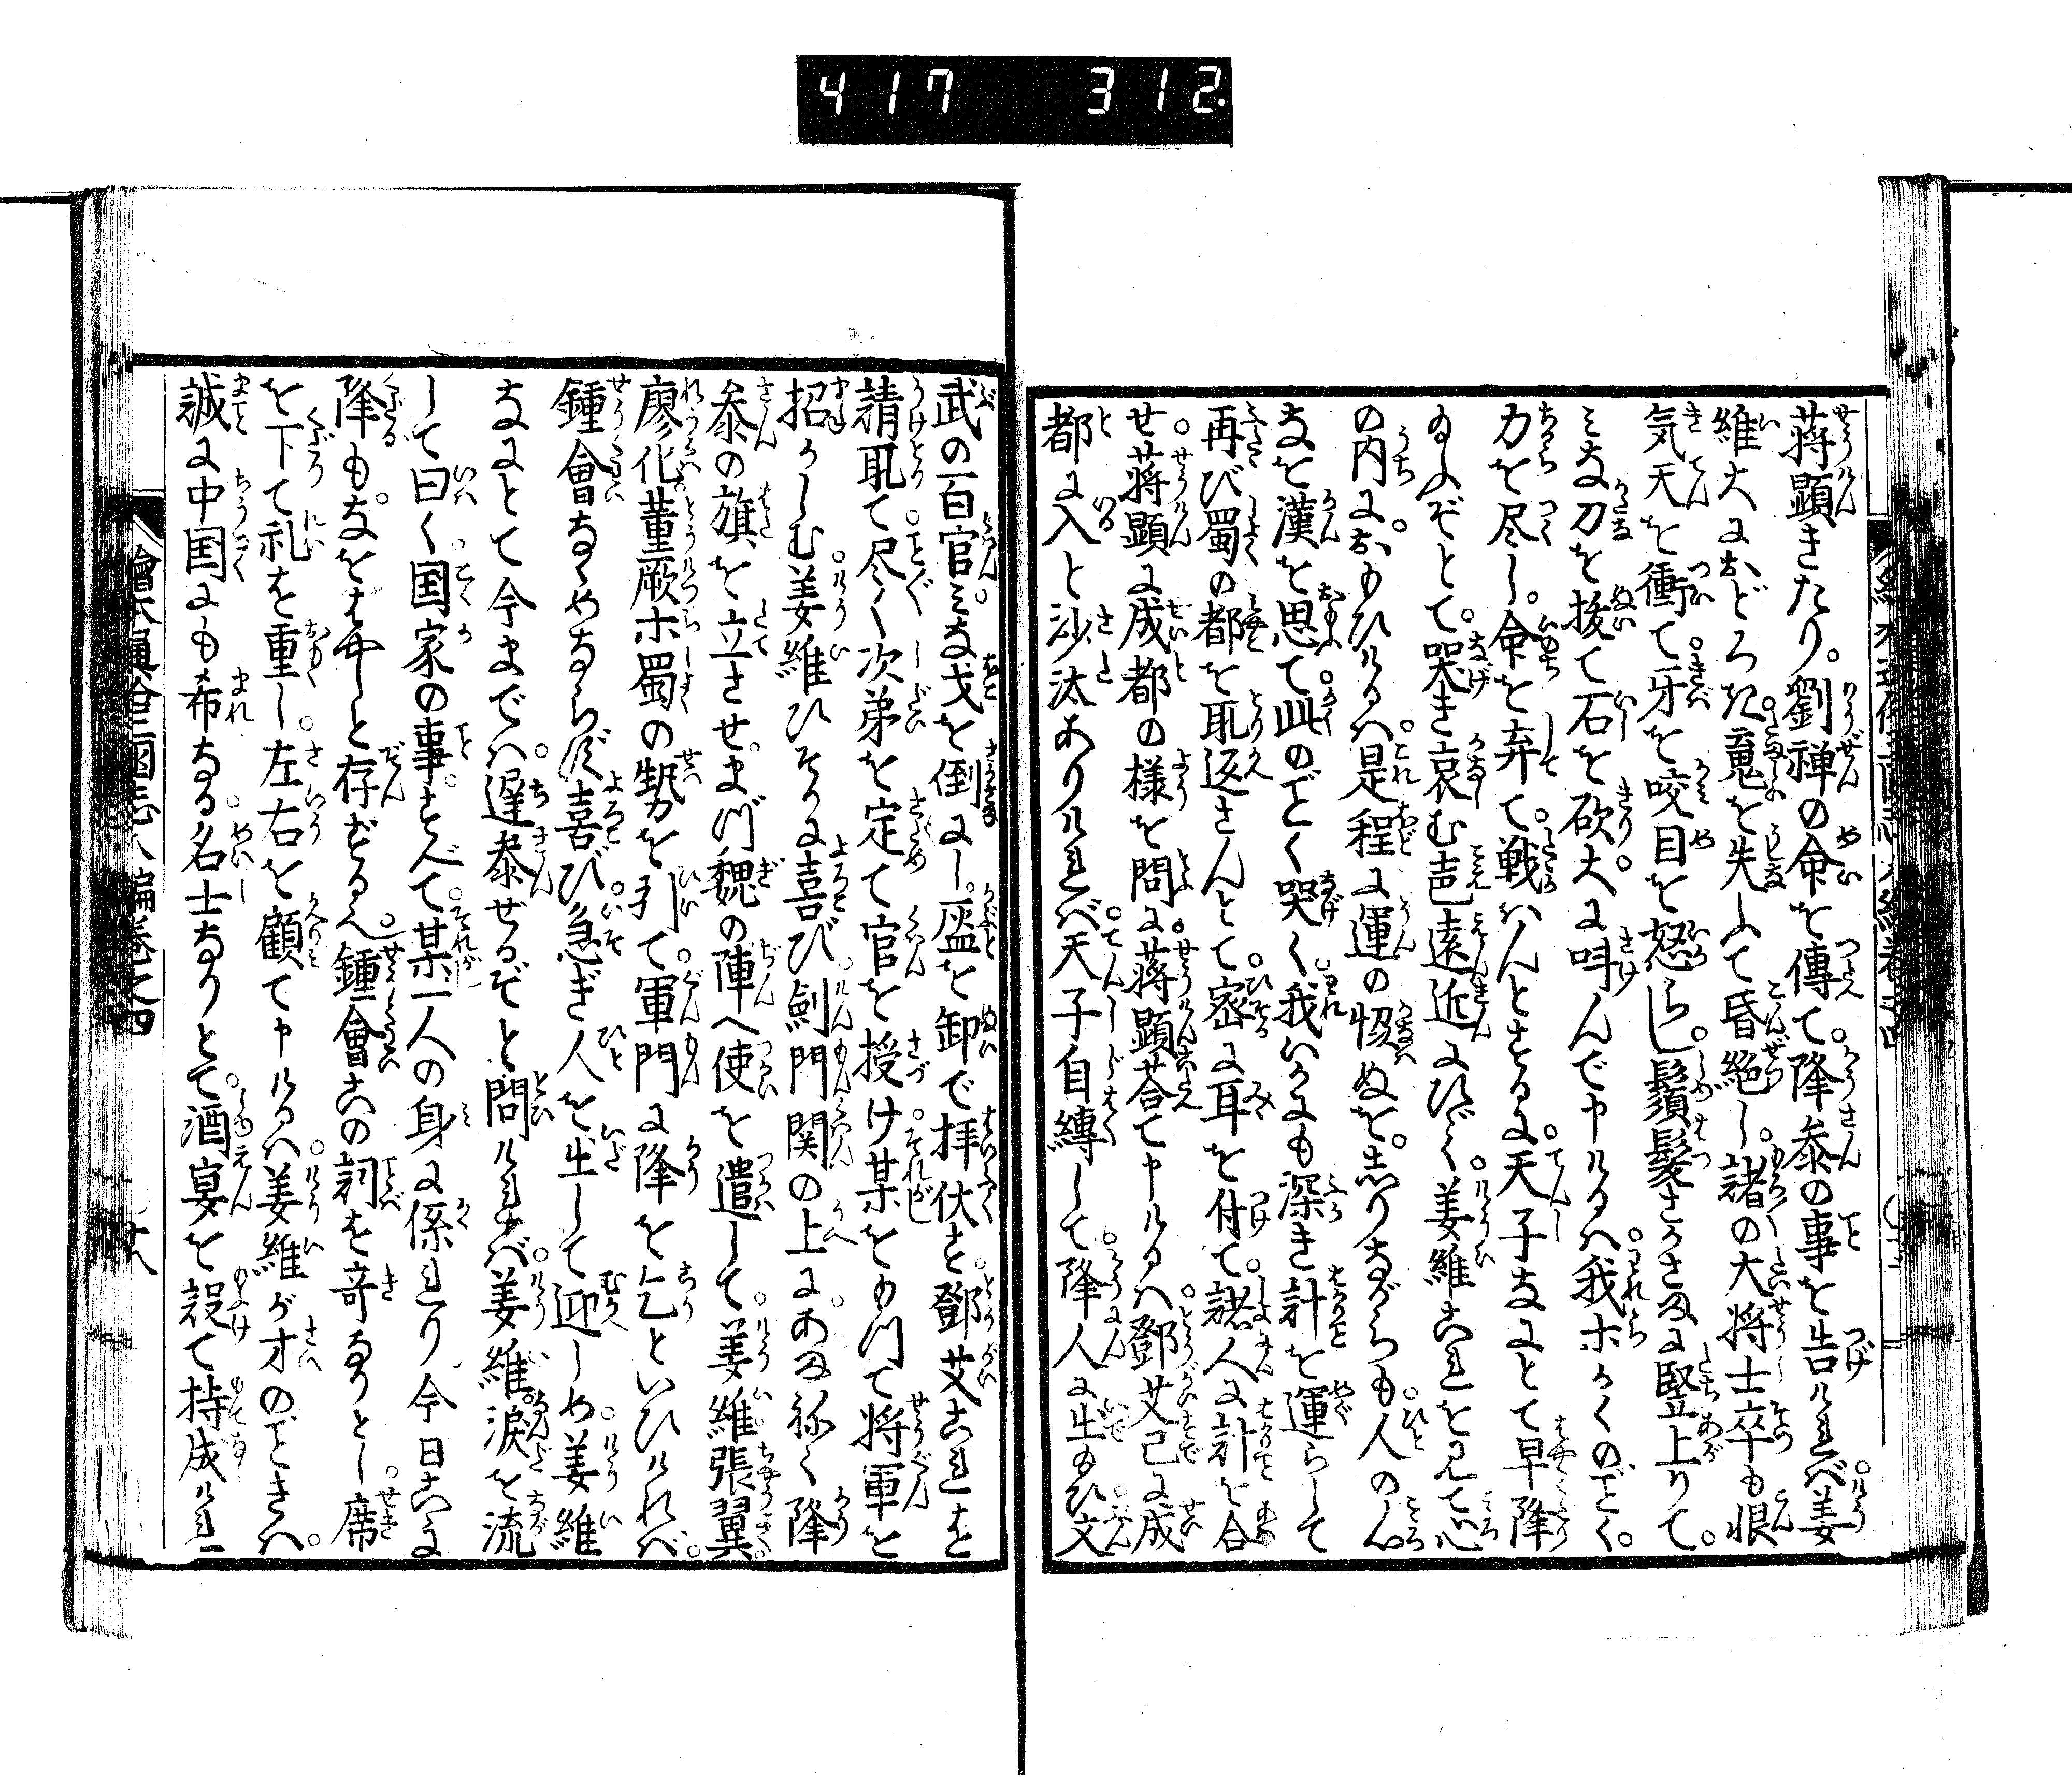 417 312
蒋顕きたり。劉禅の命を傳て。降参の事を告ければ。姜
維大におどろき。䰟を失ふて昏絶し。諸の大将士卒も恨
気天を衝て。牙を咬目を怒らし。鬚髪さかさまに竪上りて。
みな刀を抜て石を砍。大に呌んで申けるハ。我ホかくのごとく。
力を尽し。命を弃て。戦ハんとするに。天子なにとて早降
給ふぞとて。哭き哀む声遠近にひゞく。姜維これを見て。心
の内におもひけるハ。是程に運の怓ぬを。志りながらも。人の心
なを漢を思て。此のごとく哭く。我いかにも深き計を運らして
再び蜀の都を取返さんとて。密に耳を付て。諸人に計を合
せ。蒋顕に成都の様を問に。蒋顕荅て申けるハ。鄧艾已に成
都に入と沙汰ありければ。天子自縛して。降人に出給ひ。文
武の百官。みな戈を倒にし。盔を卸で拝伏す。鄧艾これを
請取て。尽く次弟を定て官を授け。某をめして将軍を
招かしむ。姜維ひそかに喜び。剣門関の上に。あまねく降
参の旗を立させ。まづ魏の陣へ使を遣して。姜維張翼。
廖化董厥ホ蜀の勢を引て。軍門に降を乞といひけれバ。
鍾會なゝめならず喜び。急ぎ人を出して迎しめ。姜維
なにとて今までハ。遅参ぜるぞと問ければ。姜維涙を流
して曰く。国家の事。すべて。某一人の身に係れり。今日こゝに
降も。なをはやしと存ずるへ。鍾會この詞を竒なりとし。席
を下て礼を重し。左右を顧て申けるハ。姜維が才のごときハ。
誠に中国にも希なる。名士なりとて。酒宴を設て持成けれ
繪本通俗三國志八編巻之四
廿八